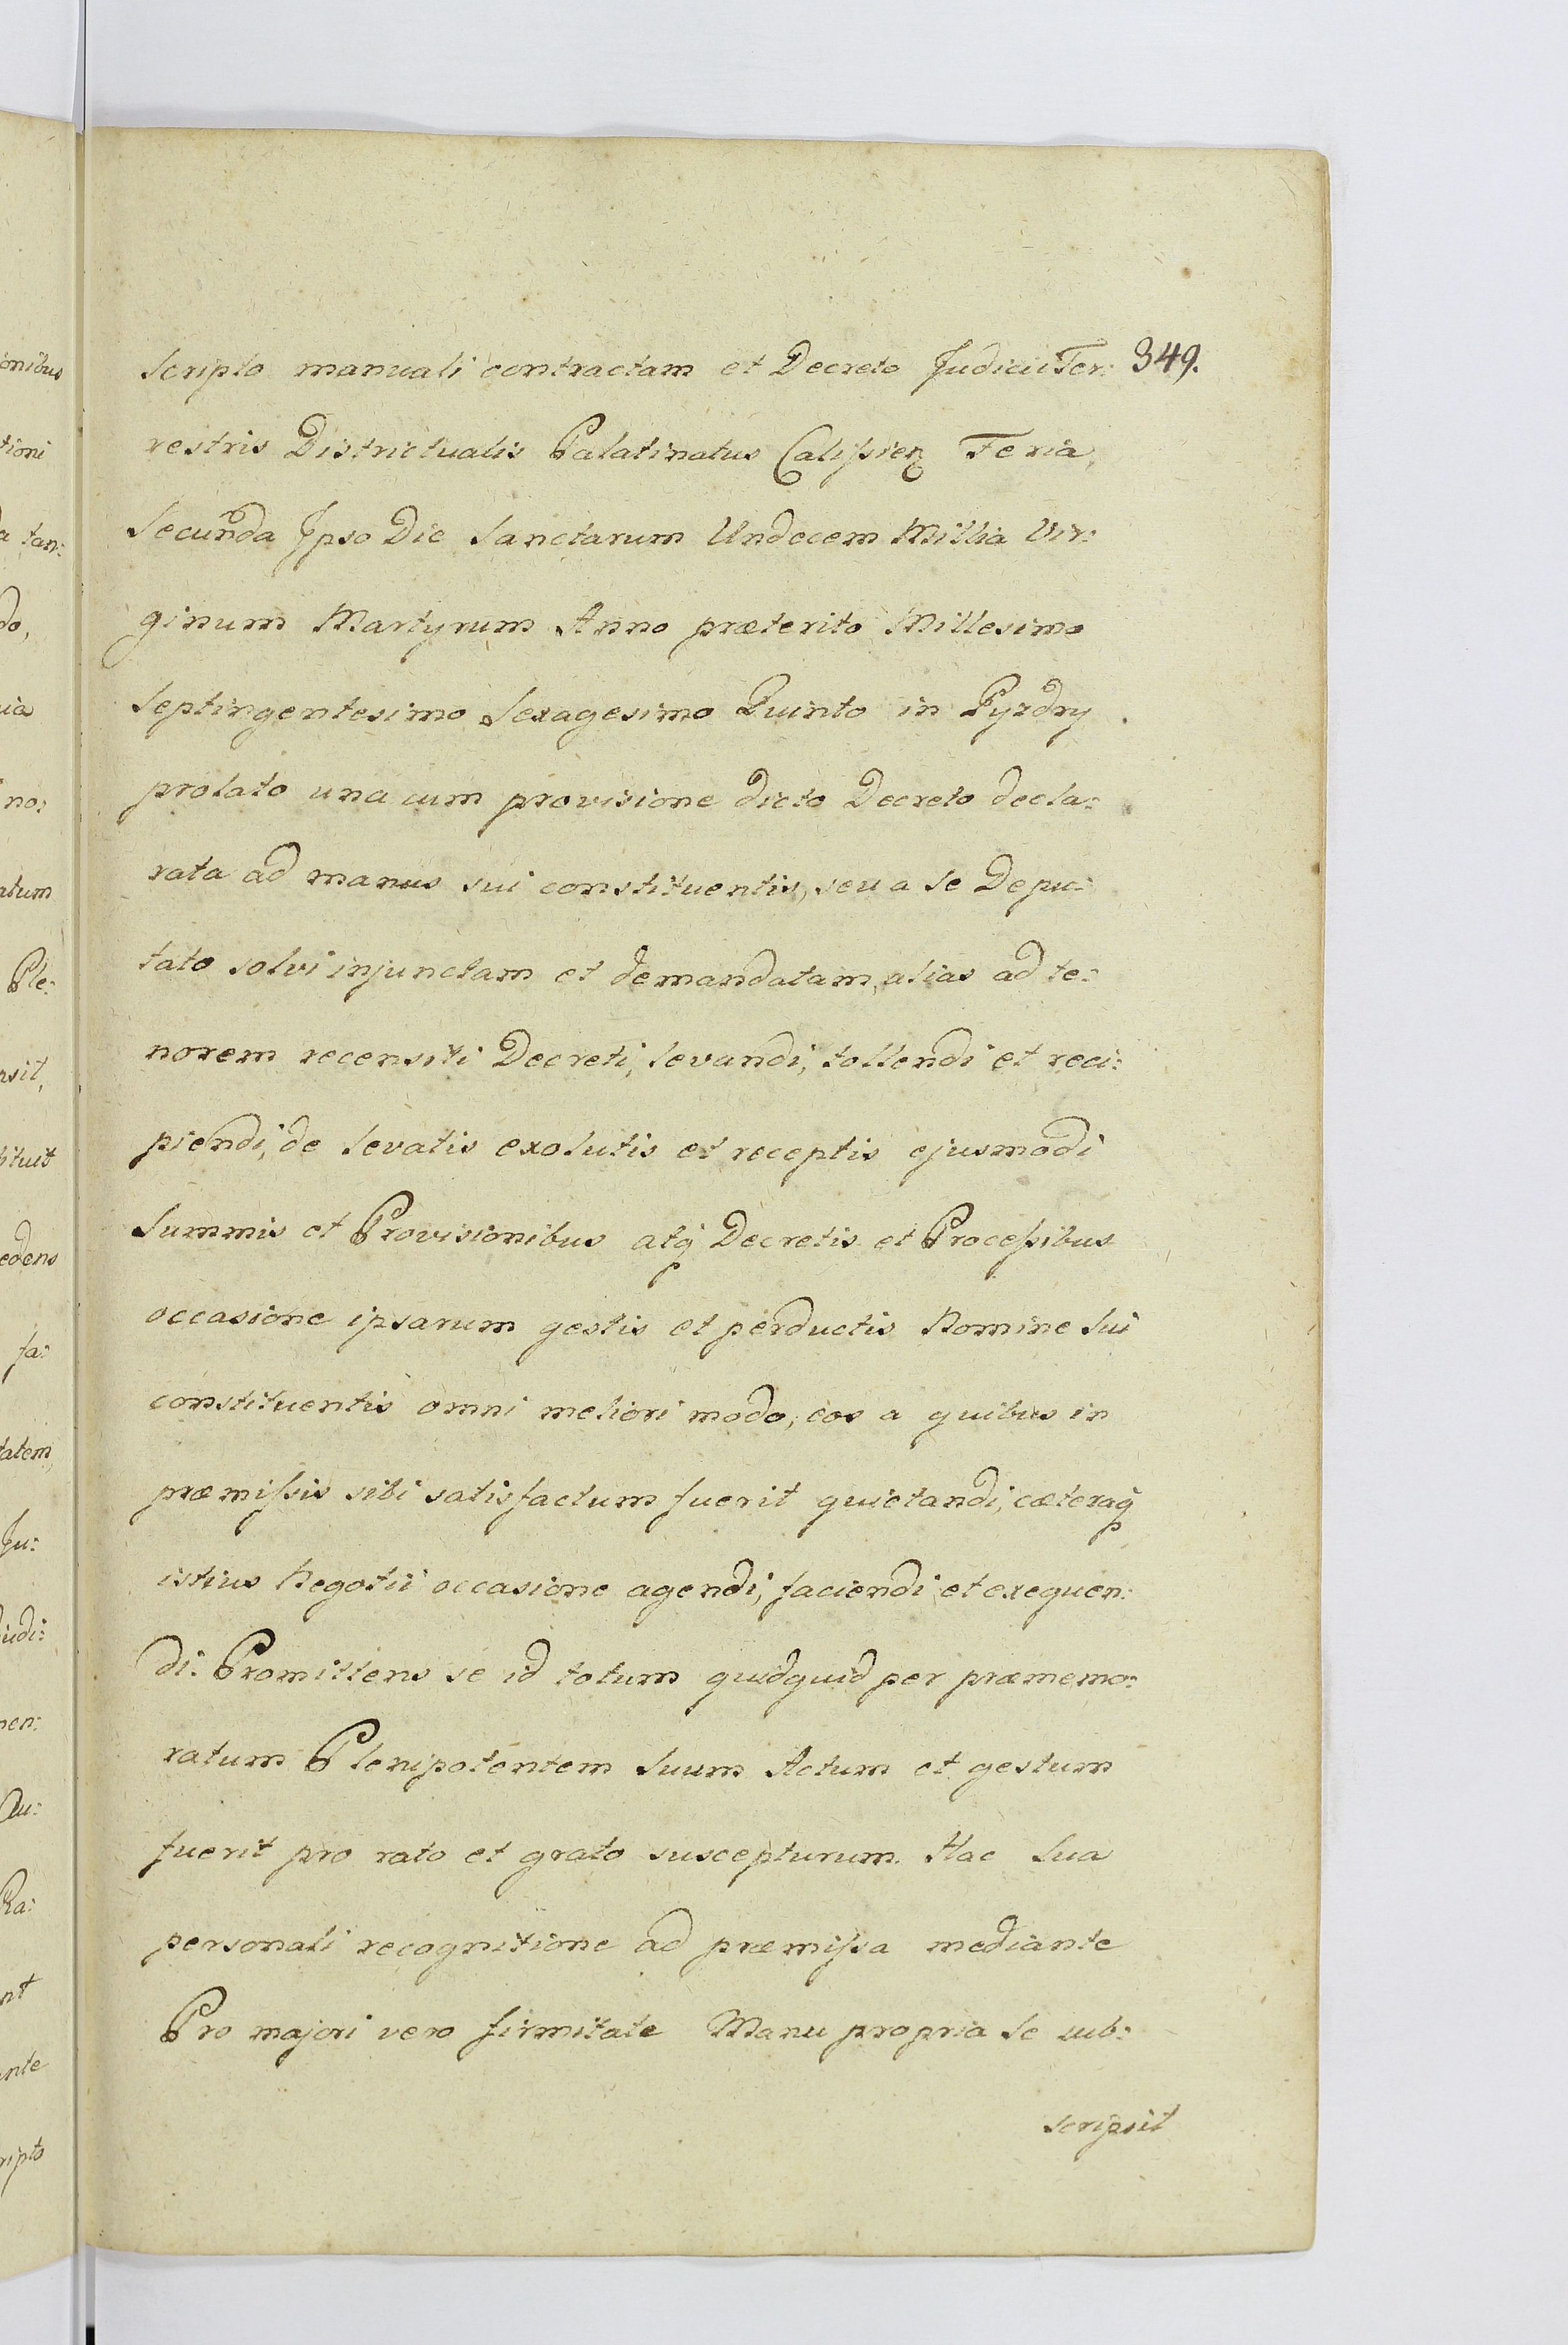 349.
Scripto manuali contractam et Decreto Judicii Ter:
restris Districtualis Palatinatus Calisien Feria
Secunda Ipso Die Sanctarum Undecem Millia Vir:
ginum Martyrum Anno præterito Millesimo
Septingentesimo Sexagesimo Quinto in Pyzdry
prolato una cum provisione dicto Decreto decla:
rata ad manus sui constituentis, seu a se Depu:
tato solvi injunctam et demandatam, alias ad te:
norem recensiti Decreti, levandi, tollendi et reci:
piendi, de levatis exolutis et receptis ejusmodi
Summis et Provisionibus atq Decretis et Processibus
occasione ipsarum gestis et perductis Nomine Sui
constituentis omni meliori modo, eos a quibus in
præmissis sibi satisfactum fuerit quietandi, cæteraq
istius Negotii occasione agendi, faciendi et exequen:
di. Promittens se id totum quidquid per præmemo:
ratum Plenipotentem Suum Actum et gestum
fuerit pro rato et grato suscepturum. Hac Sua
personali recognitione ad præmissa mediante
Pro majori vero firmitate Manu propria Se sub:
scripsit
onibus
tioni
a tan:
do,
no:
atum
Ple:
nsit,
bituit
edens
fa:
tatem
Ju:
judi:
men:
Ra:
nt
ante
ripto